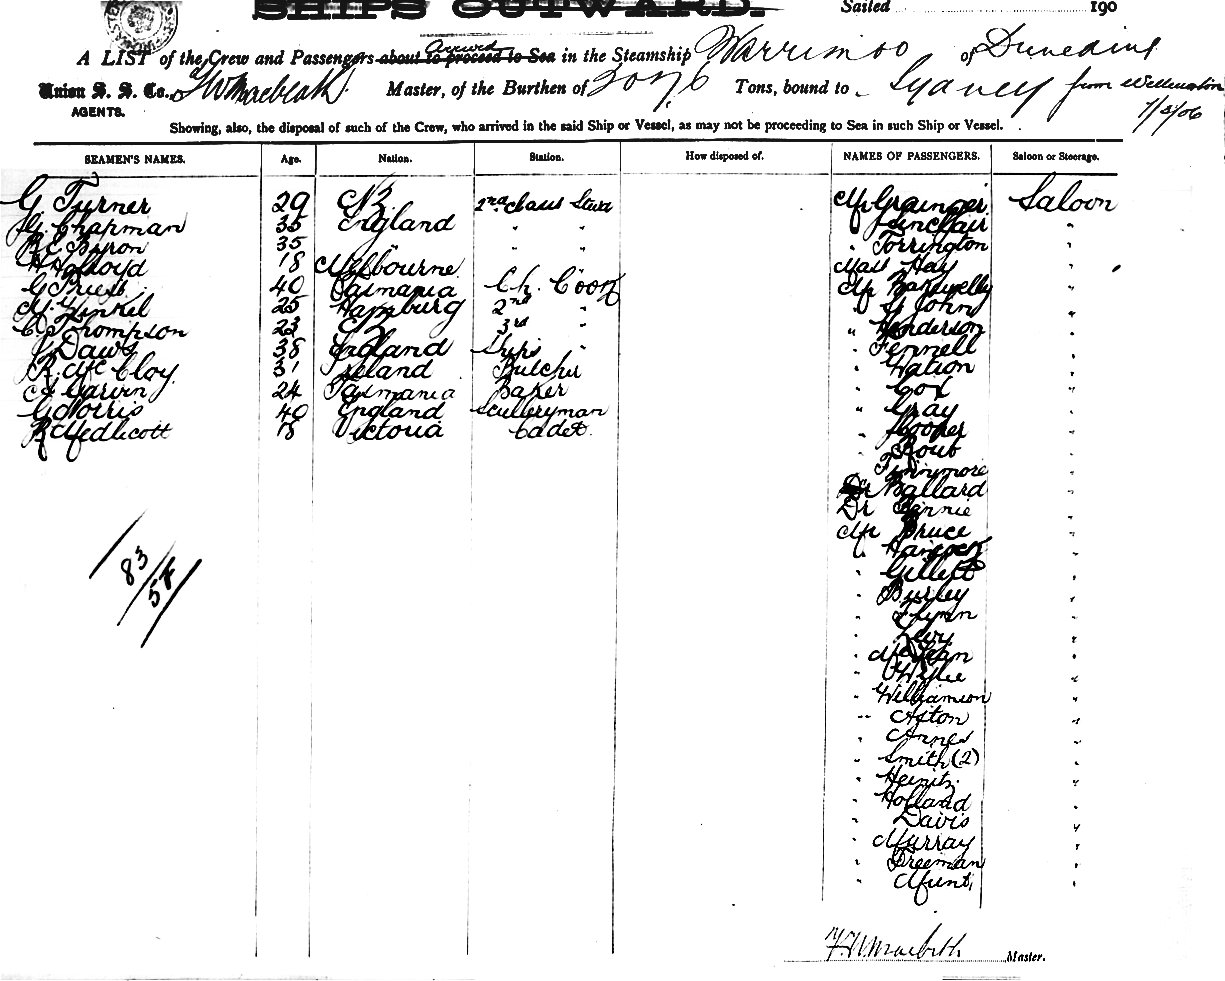 SHIPS OUTWARD.
Sailed 190
A LIST of the Crew and Passengers about to proceed to Sea arrived in the Steamship Warrimoo of Dunedin
Union S. S. Co., Master, of the Burthen of Tons, bound to Sydney from Wellington
AGENTS.
Showing, also, the disposal of such of the Crew, who arrived in the said Ship or Vessel, as may not be proceeding to Sea in such Ship or Vessel.
SEAMEN'S NAMES. Age. Nation. Station. How disposed of. NAMES OF PASSENGERS. Saloon or Steerage.
G Turner 29 NZ 2nd Class Stwd Mr Grainger Saloon
G Chapman 35 England " " " Sinclair "
R E Byron 35 " " " " Torrington "
H Holroyd 18 Melbourne Miss Hay "
G Priest 40 Tasmania Ch. Cook Mr "
M. Zinkel 25 Hamburg 2nd " " St John "
C Thompson 23 NZ 3rd " " Henderson "
J Daws 38 England Ships " " Fennell "
R. McCloy 31 Ireland Butcher " Nation "
Garvin 24 Tasmania Baker " Cox "
G Norris 40 England Sculleryman " Gray "
R Medlicott 18 Victoria Cadet. " Hooper "
" "
" Finnmore "
Dr Ballard "
Dr "
Mr Bruce "
" Hancock "
" Gillett "
" Burley "
" Flynn "
" Levy "
" McLean "
" Wylie "
" Williamson "
" Aston "
" Annes "
" Smith (2) "
" Heintz "
" Holland "
" Davis "
" Murray "
" Freeman "
" "
83
58
Master.